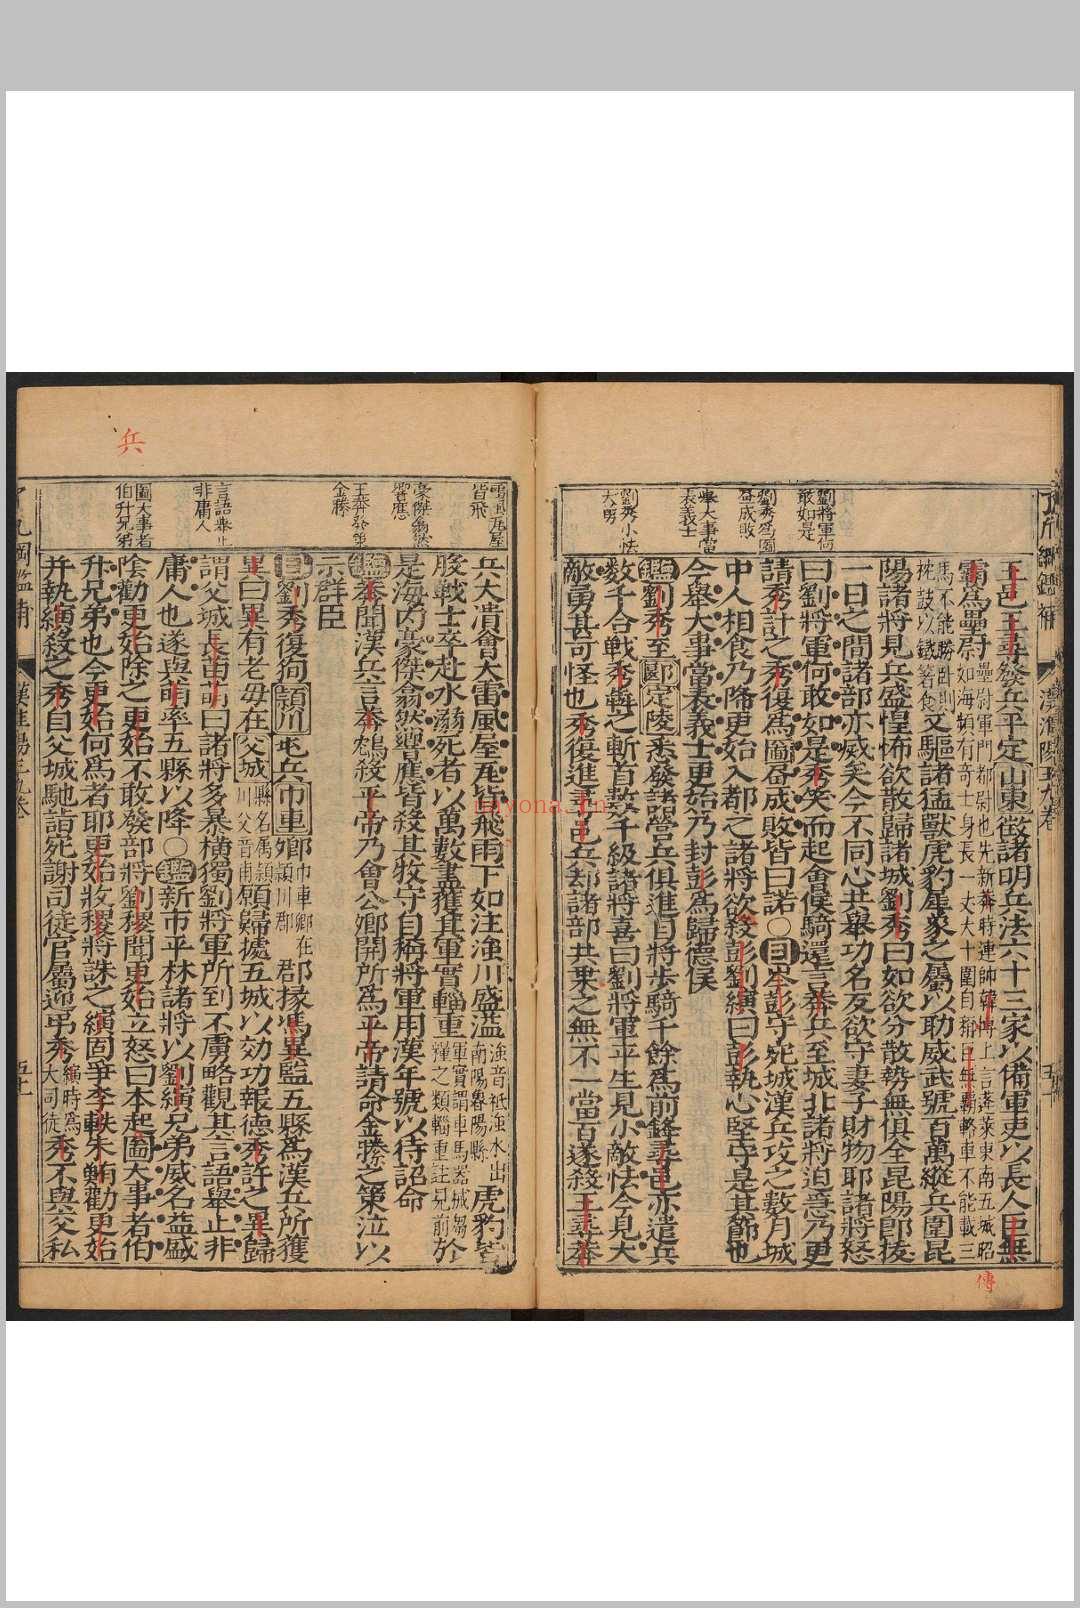 劉將軍何
敢如是
劉秀爲圖
畫成敗
舉大事當
表義士
劉秀小怯
大勇
王邑王尋發兵平定山東徵諸明兵法六十三家以備軍吏以長人巨無
霸爲壘尉壘尉軍門都尉也先新莽時連師韓博上言蓬萊東南五城昭
如海頻有奇士身長一丈大十圍自稱巨無霸輅車不能載三
馬不能勝卧則
枕鼓以鐵箸食又驅諸猛獸虎豹犀象之屬以助威武號百萬縱兵圍昆
陽諸將見兵盛惶怖欲散歸諸城劉秀曰如欲分散勢無俱全昆陽卽拔
一日之間諸部亦威矣今不同心共舉功名反欲守妻子財物耶諸將怒
曰劉將軍何敢如是秀笑而起會候騎還言莽兵至城北諸將迫急乃更
請秀計之秀復爲圖畫成敗皆曰諾○目岑彭守宛城漢兵攻之數月城
中人相食乃降更始入都之諸將欲殺彭劉縯曰彭執心堅守是其節也
今舉大事當表義士更始乃封彭爲歸德侯
鑑劉秀至郾定陵悉發諸營兵俱進自將步騎千餘爲前鋒尋邑亦遣兵
數千合戰秀犇之斬首數千級諸將喜曰劉將軍平生見小敵怯今見大
敵勇甚可怪也秀復進尋邑兵却諸部共乘之無不一當百遂殺王尋莽
雷風瓦屋
皆飛
豪傑翕然
響應
王莽發策
金縢
言語舉止
非庸人
圖大事者
伯升兄弟
兵大潰會大雷風屋瓦皆飛雨下如注滍川盛溢滍音袛滍水出
南陽魯陽縣虎豹皆
股戰士卒赴水溺死者以萬數盡獲其軍實輜重軍實謂車馬器械芻
糧之類輜重註見前於
是海內豪傑翕然響應皆殺其牧守自稱將軍用漢年號以待詔命
鑑莽聞漢兵言莽鴆殺平帝乃會公卿開所爲平帝請命金縢之策泣以
示群臣
目劉秀復狥頴川屯兵巾車鄉巾車鄉在
頴川郡郡掾馮異監五縣爲漢兵所獲
異曰異有老母在父城縣名属頴
川父音甫願歸據五城以効功報德秀許之異歸
謂父城長苗萌曰諸將多暴橫獨劉將軍所到不虜略觀其言語舉止非
庸人也遂與萌率五縣以降○鑑新市平林諸將以劉縯兄弟威名益盛
陰勸更始除之更始不敢發部將劉稷聞更始立怒曰本起圖大事者伯
升兄弟也今更始何爲者耶更始收稷將誅之縯固爭李軼朱鮪勸更始
并執縯殺之秀自父城馳詣宛謝司徒官屬迎弔秀縯時爲
大司徒秀不與交私
兵
傳
nuyona.cn